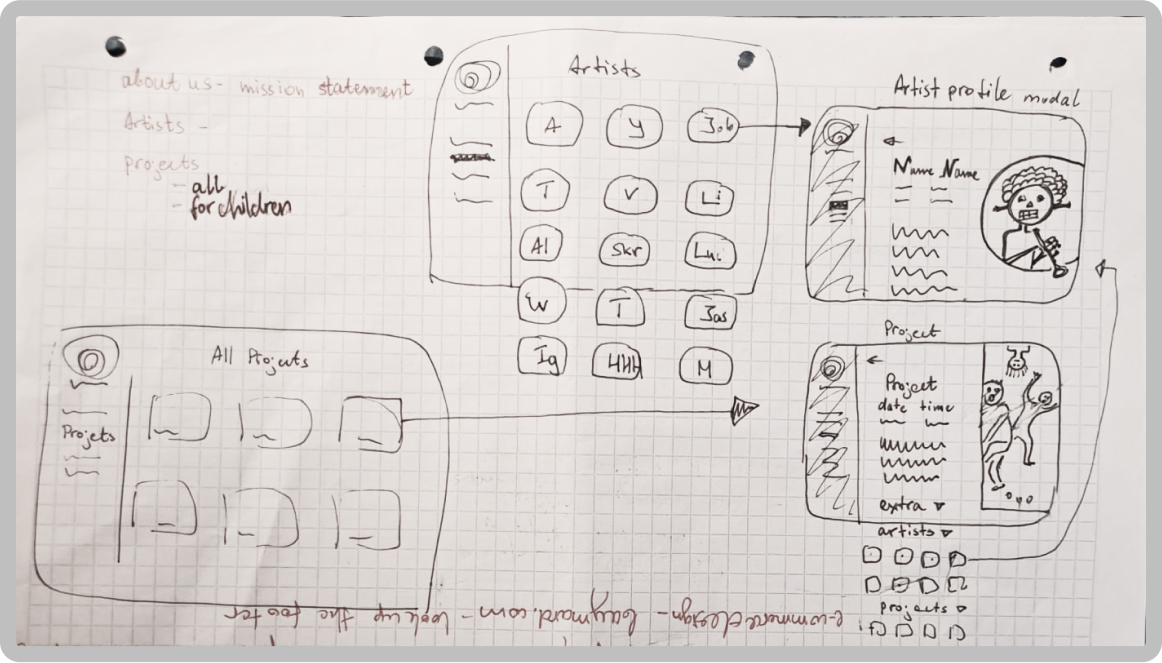 about us - mission statement
Artists -
projects
- all
- for children
Artists
A Y Job
T V Li
Al Skr Luc
W T Jas
Ig HHH M
Artist profile modal
Name Name
All Projects
Projets
Project
Project
date time
extra
artists
projects
e-commerce design - baymard.com - look up the footer